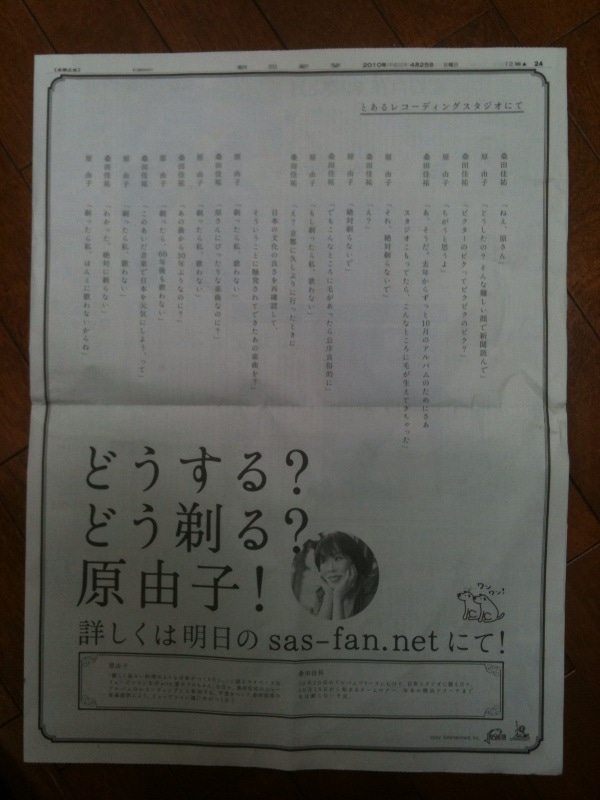 2010年 4月25日 24
とあるレコーディングスタジオにて
桑田佳祐 「ねぇ、原さん」
原 由子 「どうしたの? そんな難しい顔で新聞読んで」
桑田佳祐 「ビクターのビクってビクビクのビク?」
原 由子 「ちがうと思うよ」
桑田佳祐 「あ、そうだ、去年からずっと10月のアルバムのためにさあ
スタジオこもってたら、こんなところに毛が生えてきちゃった」
原 由子 「それ、絶対剃らないで」
桑田佳祐 「え?」
原 由子 「絶対剃らないで」
桑田佳祐 「でもこんなところに毛があったら公序良俗的に」
原 由子 「もし剃ったら私、歌わない」
桑田佳祐 「え? 京都に久しぶりに行ったときに
日本の文化の良さを再確認して、
そういうことに触発されてできたあの楽曲を?」
原 由子 「剃ったら私、歌わない」
桑田佳祐 「原さんにぴったりな楽曲なのに?」
原 由子 「剃ったら私、歌わない」
桑田佳祐 「あの曲から30年ぶりなのに?」
原 由子 「剃ったら、60年後も歌わない」
桑田佳祐 「このあいだ音楽で日本を元気にしよう、って」
原 由子 「剃ったら私、歌わない」
桑田佳祐 「わかった、絶対に剃らない」
原 由子 「剃ったら私、ほんとに歌わないからね」
どうする?
どう剃る?
原由子!
ワンワン!
詳しくは明日の sas-fan.net にて!
原由子
桑田佳祐